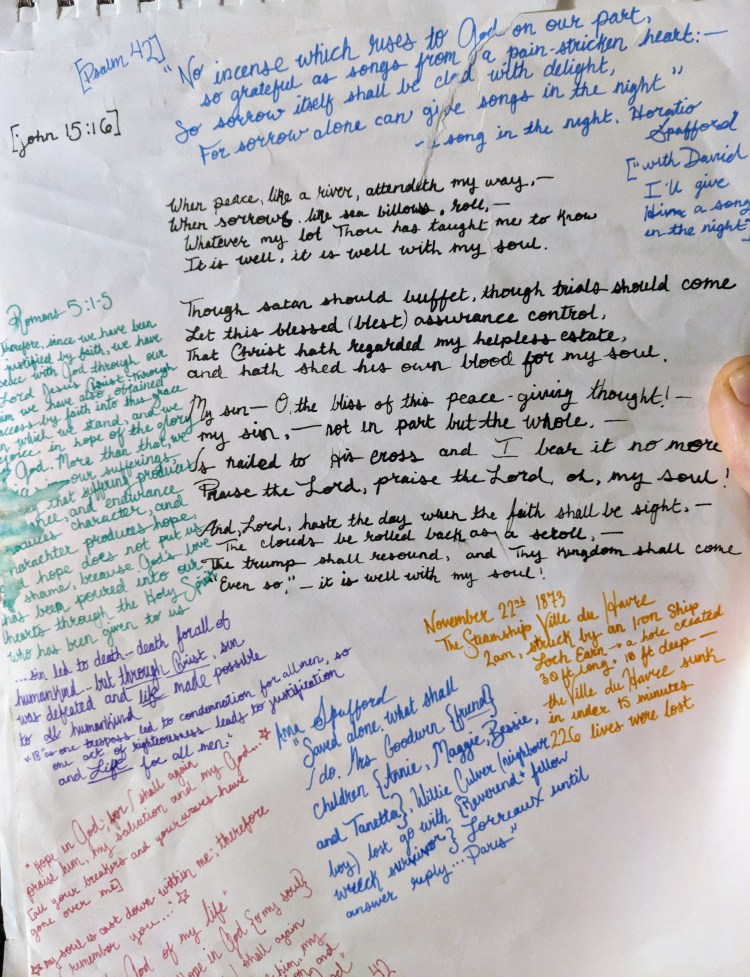 [Psalm 42]
"No incense which rises to God on our part,
so grateful as songs from a pain-stricken heart:—
So sorrow itself shall be clad with delight,
For sorrow alone can give songs in the night"
song in the night. Horatio
Spafford
["with David
I'll give
Him a song
in the night"
[john 15:16]
When peace, like a river, attendeth my way,—
When sorrows, like sea billows, roll,—
Whatever my lot Thou has taught me to know
It is well, it is well with my soul.
Though satan should buffet, though trials should come
Let this blessed (blest) assurance control,
That Christ hath regarded my helpless estate,
and hath shed his own blood for my soul.
My sin— O, the bliss of this peace-giving thought!—
my sin,— not in part but the whole,—
Is nailed to His cross and I bear it no more
Praise the Lord, praise the Lord, oh, my soul!
And, Lord, haste the day when the faith shall be sight,—
The clouds be rolled back as a scroll,—
The trump shall resound, and Thy Kingdom shall come
"Even so,"— it is well with my soul!
Romans 5:1-5
Therefore, since we have been
justified by faith, we have
peace with God through our
Lord Jesus Christ. Through
him we have also obtained
access by faith into this grace
in which we stand, and we
rejoice in hope of the glory
of God. More than that, we
in our sufferings,
that suffering produces
and endurance
produces character, and
charachter produces hope,
and hope does not put us
to shame, because God's love
has been poured into our
hearts through the Holy Spirit
who has been given to us
...sin led to death—death for all of
humankind—but through Christ, sin
was defeated and life made possible
to all humankind
v.18 "as one trespass led to condemnation for all men, so
one act of righteousness leads to justification
and Life for all men."
"Hope in God; for I shall again
praise him, my salvation and my God...
[all your breakers and your waves have
gone over me]
my soul is cast down within me; therefore
remember you..."
God of my life"
Hope in God {o my soul}
I shall again
him, my
and
42
November 22nd 1873
The Steamship Ville du Havre
2am, struck by an Iron Ship
Loch Earn → a hole created
30 ft long + 18 ft deep—
the Ville du Havre sunk
in under 15 minutes
226 lives were lost
Anna Spafford
"Saved alone. what shall
I do. Mrs. Goodwin {friend}
children {Annie, Maggie, Bessie,
and Tanetta}, Willie Culver (neighbour
boy) lost go with {Reverend + fellow
wreck survivor} Lorreaux until
answer reply... Paris"